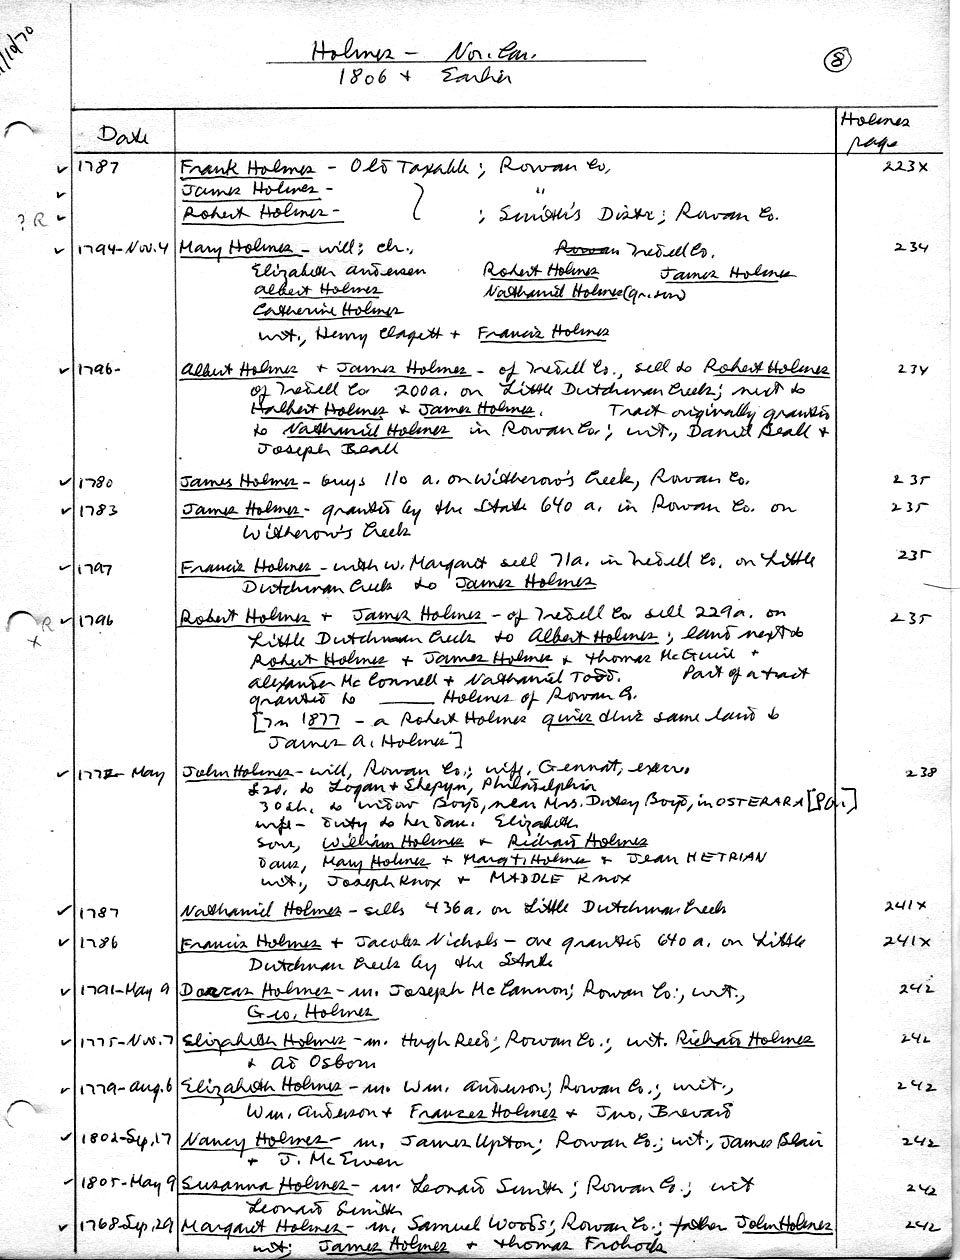 1/1/70
Holmes - Nor. Car.
1806 + Earlier
8
Date
Holmes page
✓ 1787 Frank Holmes - Old Taxable; Rowan Co. 223x
✓ James Holmes - "
? R ✓ Robert Holmes - ; Smith's Distr; Rowan Co.
✓ 1794-Nov. 4 Mary Holmes - will; ch., Rowan Iredell Co. 234
Elizabeth Andersen Robert Holmes James Holmes
Albert Holmes Nathaniel Holmes (gr. son)
Catherine Holmes
wit., Henry Clagett + Francis Holmes
✓ 1796- Albert Holmes + James Holmes - of Iredell Co., sell to Robert Holmes 234
of Iredell Co 200a. on Little Dutchman Creek; next to
Halbert Holmes + James Holmes. Tract originally granted
to Nathaniel Holmes in Rowan Co.; wit., Daniel Beall +
Joseph Beall
✓ 1780 James Holmes - buys 110 a. on Witherow's Creek, Rowan Co. 235
✓ 1783 James Holmes - granted by the State 640 a. in Rowan Co. on 235
Witherow's Creek
✓ 1797 Francis Holmes - with w. Margaret sell 71a. in Iredell Co. on Little 235
Dutchman Creek to James Holmes
R x ✓ 1796 Robert Holmes + James Holmes - of Iredell Co sell 229a. on 235
Little Dutchman Creek to Albert Holmes; land next to
Robert Holmes + James Holmes + Thomas McGuire +
Alexander McConnell + Nathaniel Todd. Part of a tract
granted to ____ Holmes of Rowan Co.
[In 1877 - a Robert Holmes gives this same land to
James A. Holmes"]
✓ 1772- May John Holmes - will, Rowan Co.; wife, Gennat, exec. 238
£20. to Logan + Shepyn, Philadelphia
30 sh. to widow Boyd, near Mrs. Dutey Boyd, in OSTERARA [Pa.]
wife - duty to her dau. Elizabeth
sons, William Holmes + Richard Holmes
daus, Mary Holmes + Margt. Holmes + Jean HETRIAN
wit., Joseph Knox + MADDLE Knox
✓ 1787 Nathaniel Holmes - sells 436a. on Little Dutchman Creek 241x
✓ 1786 Francis Holmes + Jacobs Nichols - are granted 640 a. on Little 241x
Dutchman Creek by the State
✓ 1791-May 9 Dorcas Holmes - m. Joseph McCannon; Rowan Co.; wit., 242
Geo. Holmes
✓ 1775-Nov. 7 Elizabeth Holmes - m. Hugh Reed; Rowan Co.; wit. Richard Holmes 242
+ Ad Osborn
✓ 1779-Aug. 6 Elizabeth Holmes - m. Wm. Anderson; Rowan Co.; wit., 242
Wm. Anderson + Frances Holmes + Jno. Brevard
✓ 1802-Sep. 17 Nancy Holmes - m. James Upton; Rowan Co.; wit., James Blair 242
+ J. McEwen
✓ 1805-May 9 Susanna Holmes - m. Leonard Smith; Rowan Co.; wit 242
Leonard Smith
✓ 1768-Sep. 29 Margaret Holmes - m. Samuel Woods; Rowan Co.; father John Holmes 242
wit; James Holmes + Thomas Frohock